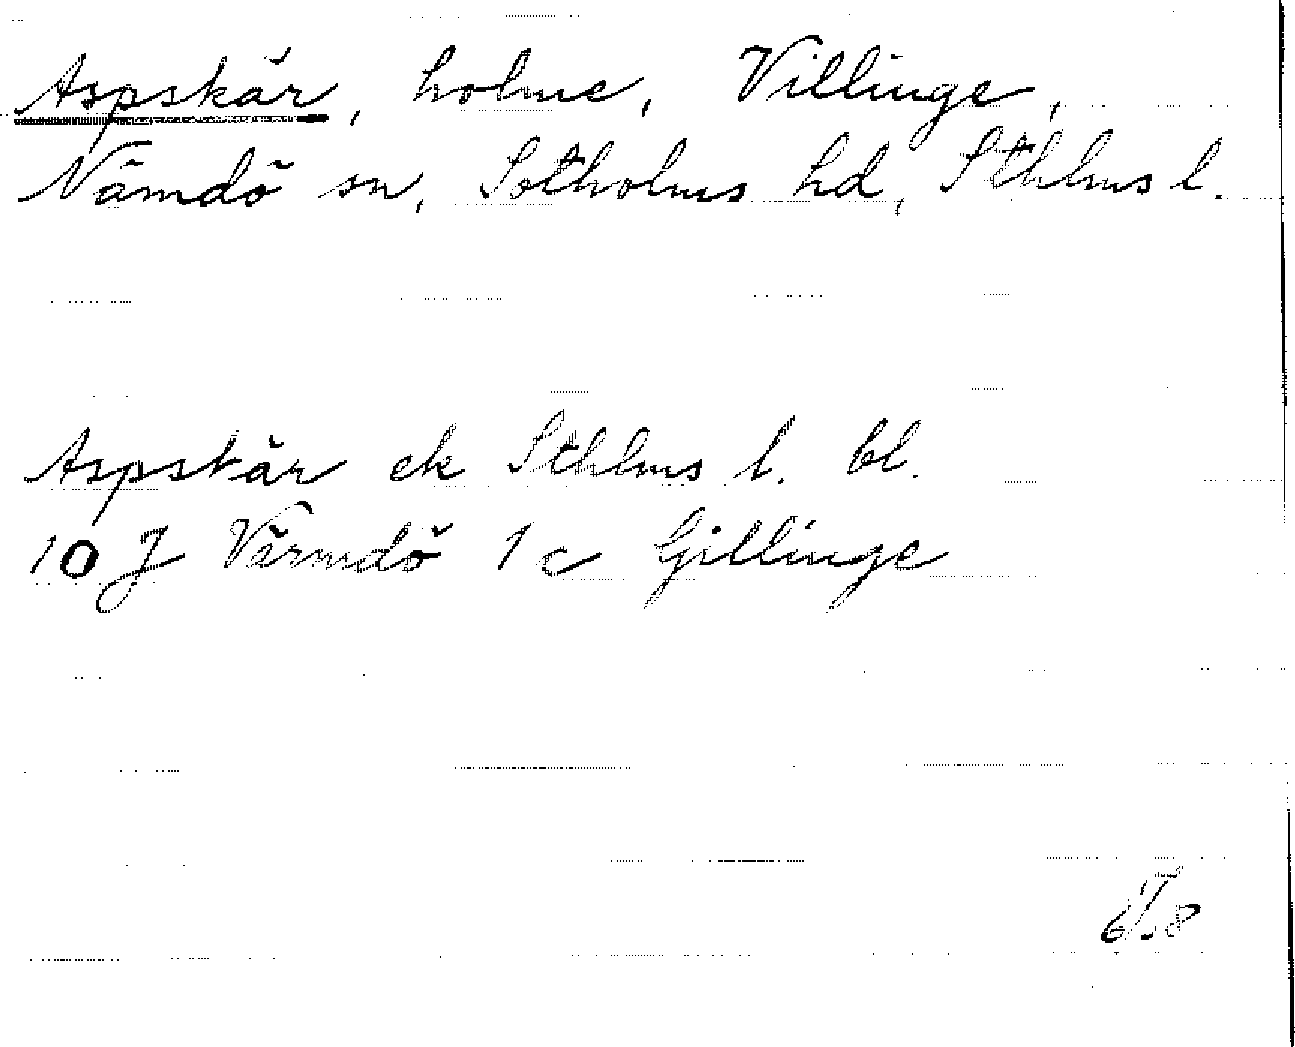 Aspskär, holme, Villinge,
Nämdö sn, Sotholms hd, Sthlms l.
Aspskär ek Sthlms l. bl.
10 J Värmdö 1 c Gillinge